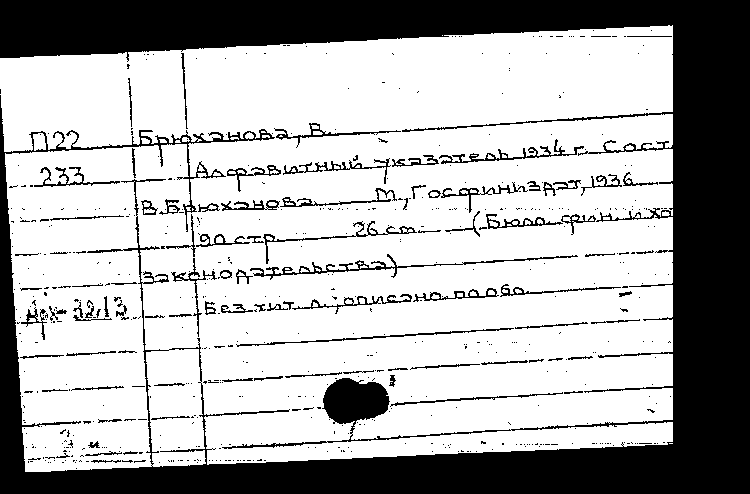 П22 Брюханова, В.
233 Алфавитный указатель 1934 г. Сост.
В.Брюханова. М., Госфиниздат, 1936
90 стр. 26 см. (Бюлл. фин. и хо
законодательства)
Арх-3213 Без тит. л.; описано по обл.